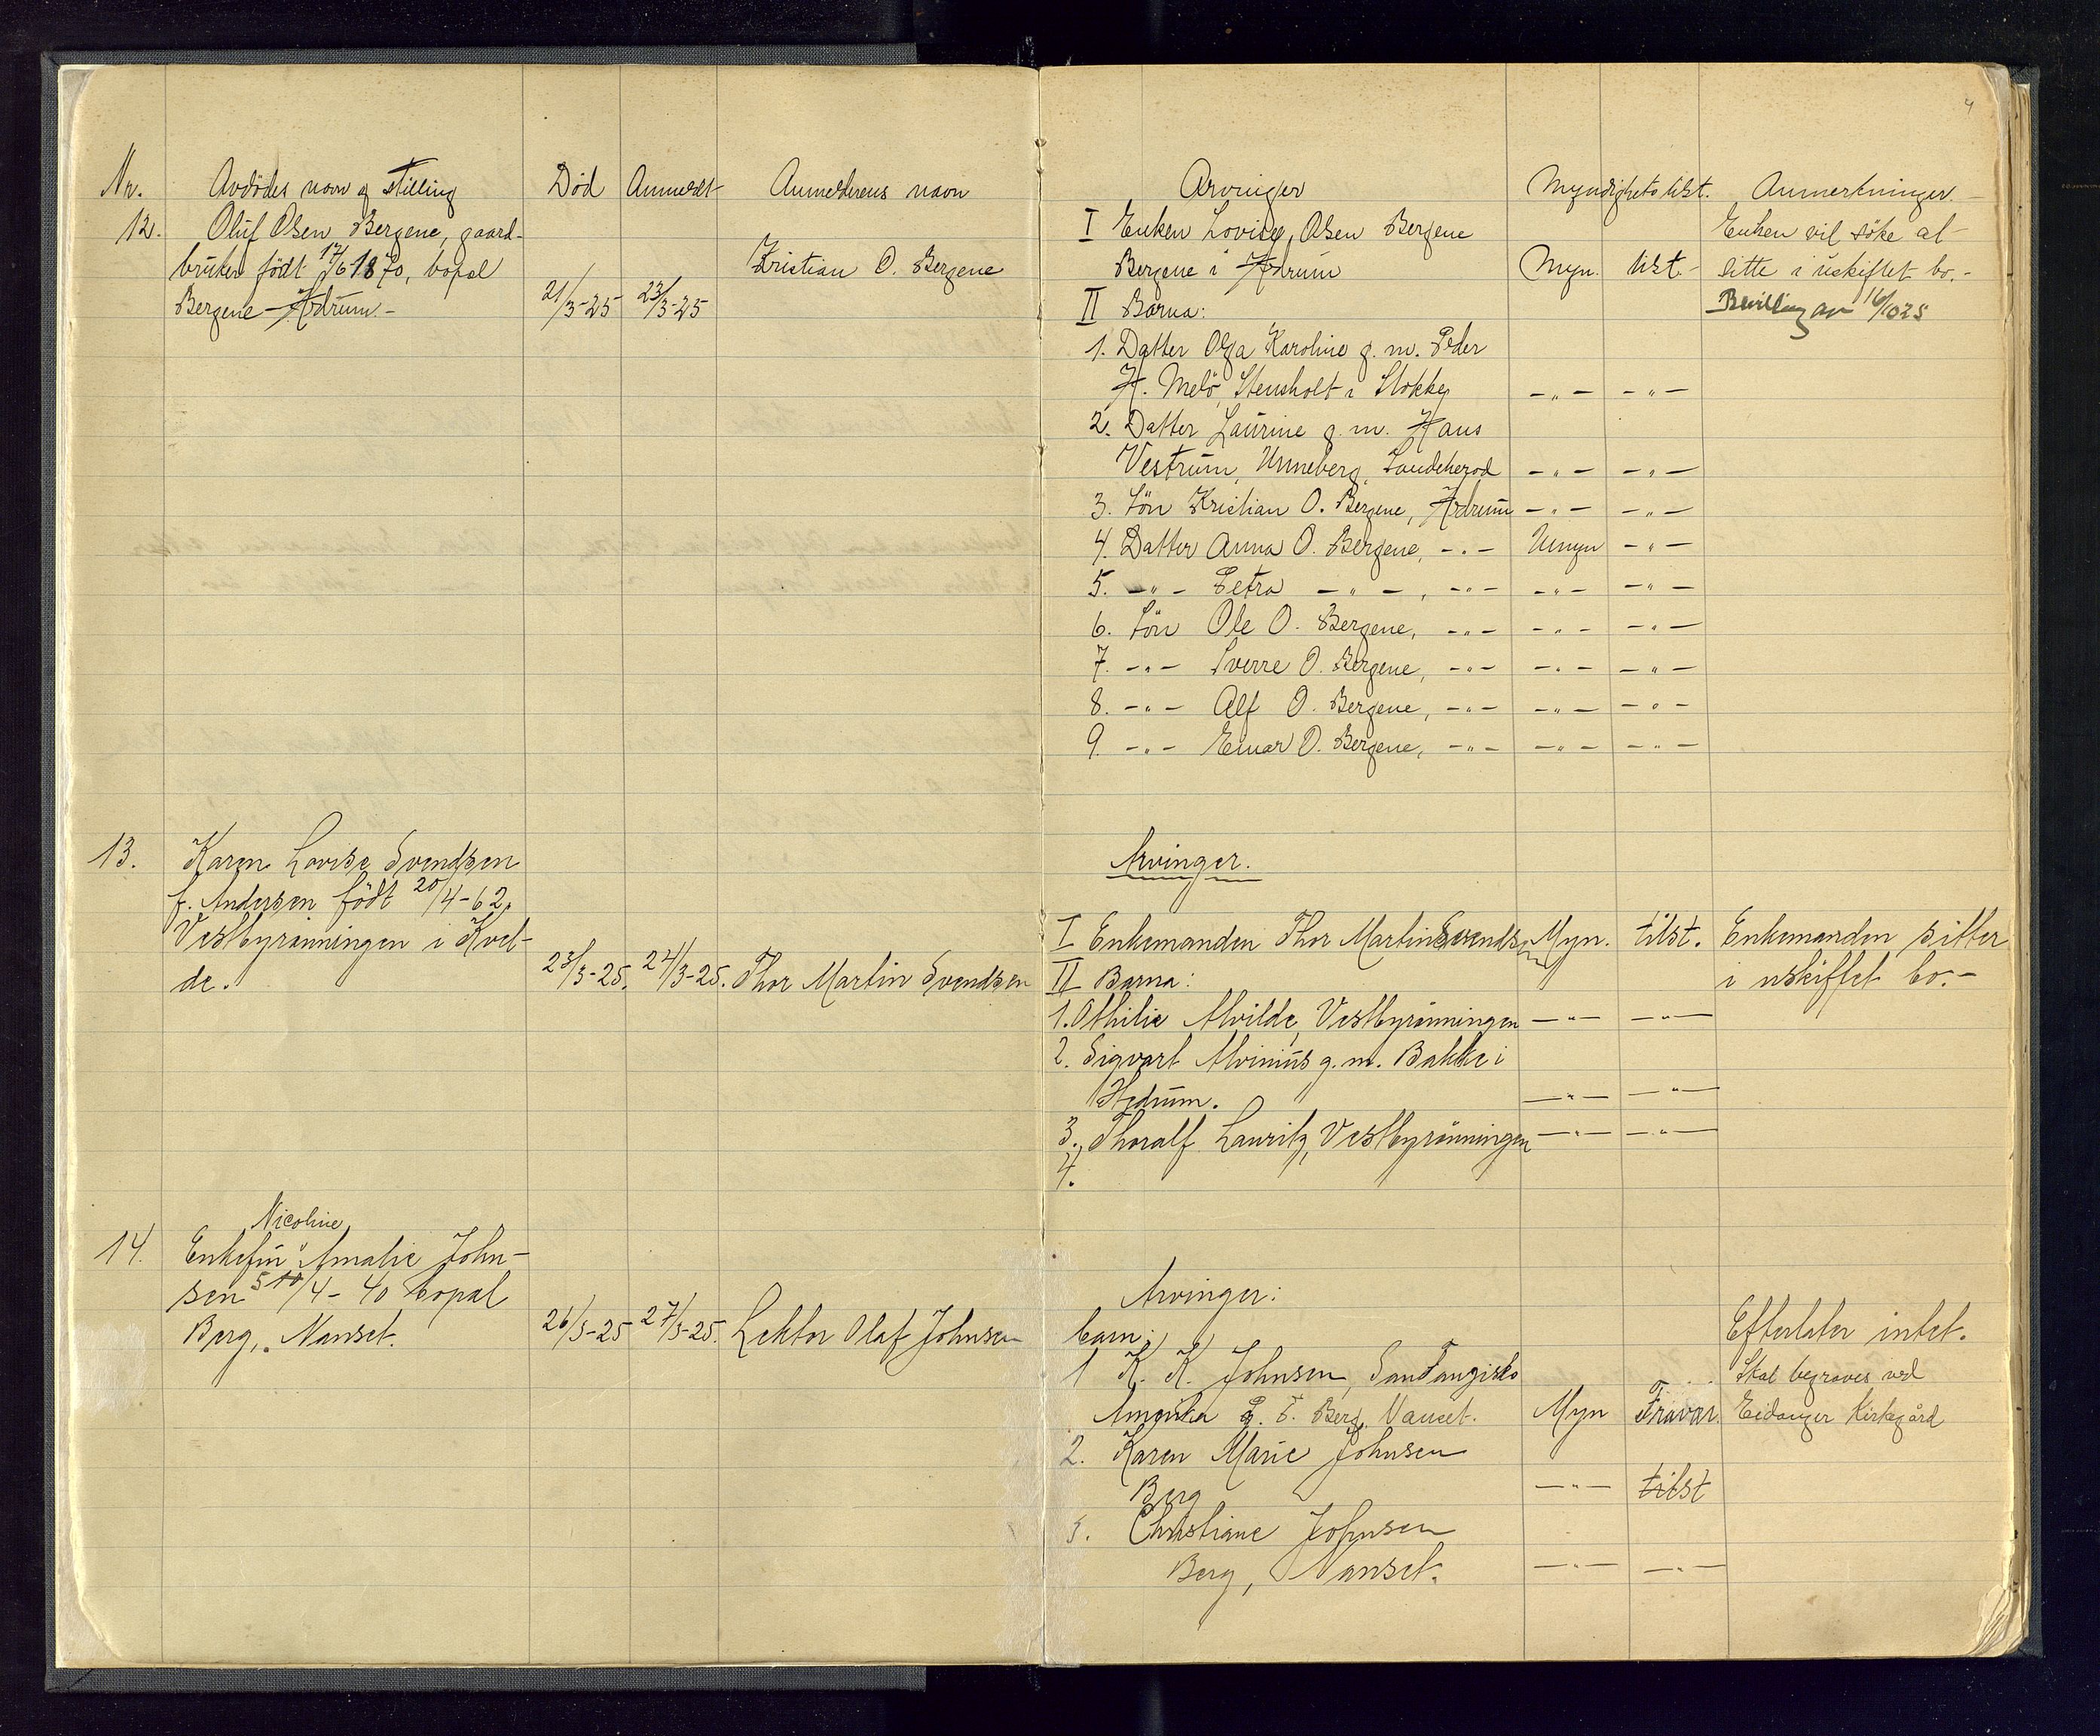 4
Nr. Avdödes navn og stilling Död Anmeldt Anmelderens navn
12. Oluf Olsen Bergene, gaard-
bruker födt 17/6 1870, bopæl Kristian O. Bergene
Bergene - Hedrum.- 21/3-25 23/3-25
13. Karen Lovise Svendsen
f. Andersen födt 20/4-62,
Vestbyrönningen i Kvel-
de. 23/3-25. 24/3-25. Thor Martin Svendsen
Nicoline
14. Enkefru Amalie John-
sen 5 10/4-40 bopæl
Berg, Nanset. 26/3-25 27/3-25. Lektor Olaf Johnsen
Arvinger Myndighets tilst. Anmerkninger.
I Enken Lovise Olsen Bergene Enken vil söke at
Bergene i Hedrum Myn. tilst. sitte i uskiftet bo.-
II Barna: Bevilling av 16/10 25
1. Datter Olga Karoline g. m. Peder
H. Melö, Stensholt i Stokke -"- -"-
2. Datter Laurine g. m. Hans
Vestrum, Unneberg, Sandeherod -"- -"-
3. Sön Kristian O. Bergene, Hedrum -"- -"-
4. Datter Anna O. Bergene, -"- Umyn -"-
5. -"- Petra -"-, -"- -"- -"-
6. Sön Ole O. Bergene, -"- -"- -"-
7. -"- Sverre O. Bergene, -"- -"- -"-
8. -"- Alf O. Bergene, -"- -"- -"-
9. -"- Einar O. Bergene, -"- -"- -"-
Arvinger.
I Enkemanden Thor Martin Svendsen Myn. tilst. Enkemanden sitter
II Barna: i uskiftet bo.-
1. Othilie Alvilde, Vestbyrönningen -"- -"-
2. Sigvart Alvinius g. m. Bakke i
Hedrum. -"- -"-
3. Thoralf Lauritz, Vestbyrönningen -"- -"-
4.
Arvinger:
barn: Efterlater intet.
1 K. K. Johnsen, San Fangisko Skal begraves ved
Amerika Berg, Nanset. Myn Fravær. Eidanger Kirkegård
2. Karen Marie Johnsen
Berg -"- tilst
3. Christiane Johnsen
Berg, Nanset. -"- -"-